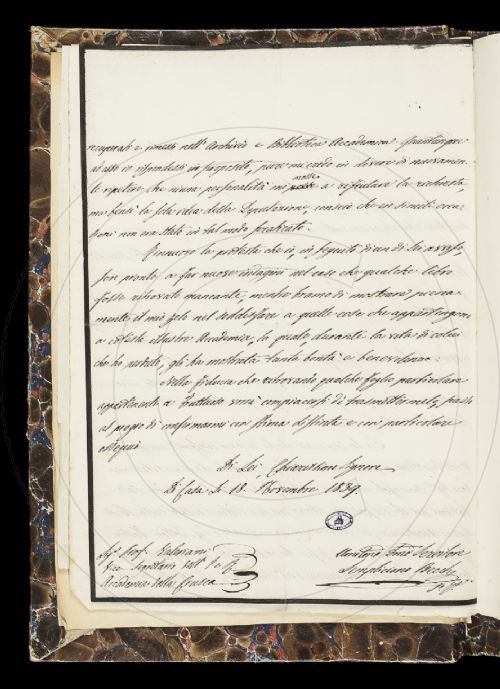 recuperati e rimessi nell'Archivio e Biblioteca Accademica. Quantunque
ad esso io rispondessi in proposito, pure mi credo in dovere di nuovamen-
te ripetere che niuna personalità mi mosse a rifiutare la richiesta
ma bensì la sola idea della Deputazione, conscio che in simili occa-
sioni non era stato in tal modo praticato.
Rinnuovo la protesta che io, in seguito di un di Lei avviso,
son pronto a far nuove indagini nel caso che qualche libro
fosse ritrovato mancante, mentre bramo di mostrare piena-
mente il mio zelo nel soddisfare a quelle cose che appartengono
a codesta illustre Accademia, la quale, durante la vita di colui
che ho perduto, gli ha mostrata tanta bontà e benevolenza.
Nella fiducia che ritrovando qualche foglio particolare
appartenente a Fruttuoso vorrà compiacersi di trasmettermelo, passo
al pregio di confermarmi con stima distinta e con particolare
ossequio
Di Lei, Chiarissimo Signore
Di Casa li 18. Novembre 1839.
Sig. Prof. Valeriani
Pro Segretario dell' I. e R.
Accademia della Crusca
Servitore
Becchi